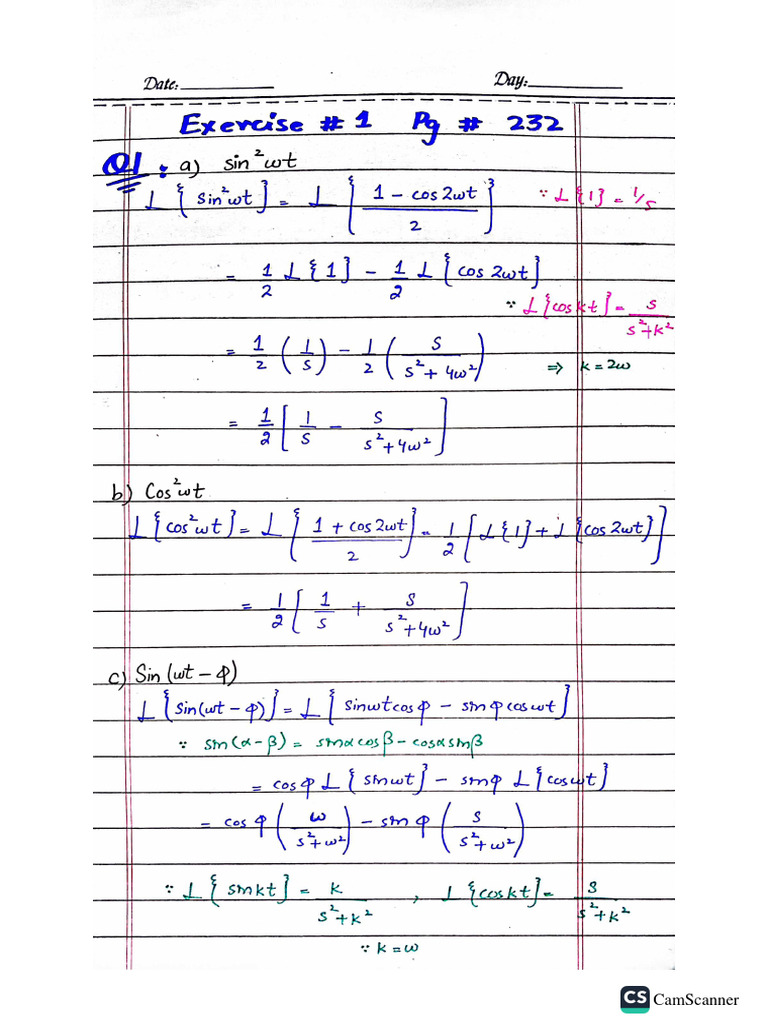 Date: Day:
Exercise # 1 Pg # 232
Q1: a) sin²ωt
L{sin²ωt} = L{(1 - cos2ωt)/2} ∵ L{1} = 1/s
= 1/2 L{1} - 1/2 L{cos2ωt}
∵ L{coskt} = s/(s²+k²)
= 1/2 (1/s) - 1/2 (s/(s²+4ω²)) ⇒ k = 2ω
= 1/2 [1/s - s/(s²+4ω²)]
b) Cos²ωt
L{cos²ωt} = L{(1 + cos2ωt)/2} = 1/2 [L{1} + L{cos2ωt}]
= 1/2 [1/s + s/(s²+4ω²)]
c) Sin(ωt - φ)
L{sin(ωt - φ)} = L{sinωt cosφ - sinφ cosωt}
∵ sin(α - β) = sinα cosβ - cosα sinβ
= cosφ L{sinωt} - sinφ L{cosωt}
= cosφ (ω/(s²+ω²)) - sinφ (s/(s²+ω²))
∵ L{sinkt} = k/(s²+k²) , L{coskt} = s/(s²+k²)
∵ k = ω
CS CamScanner